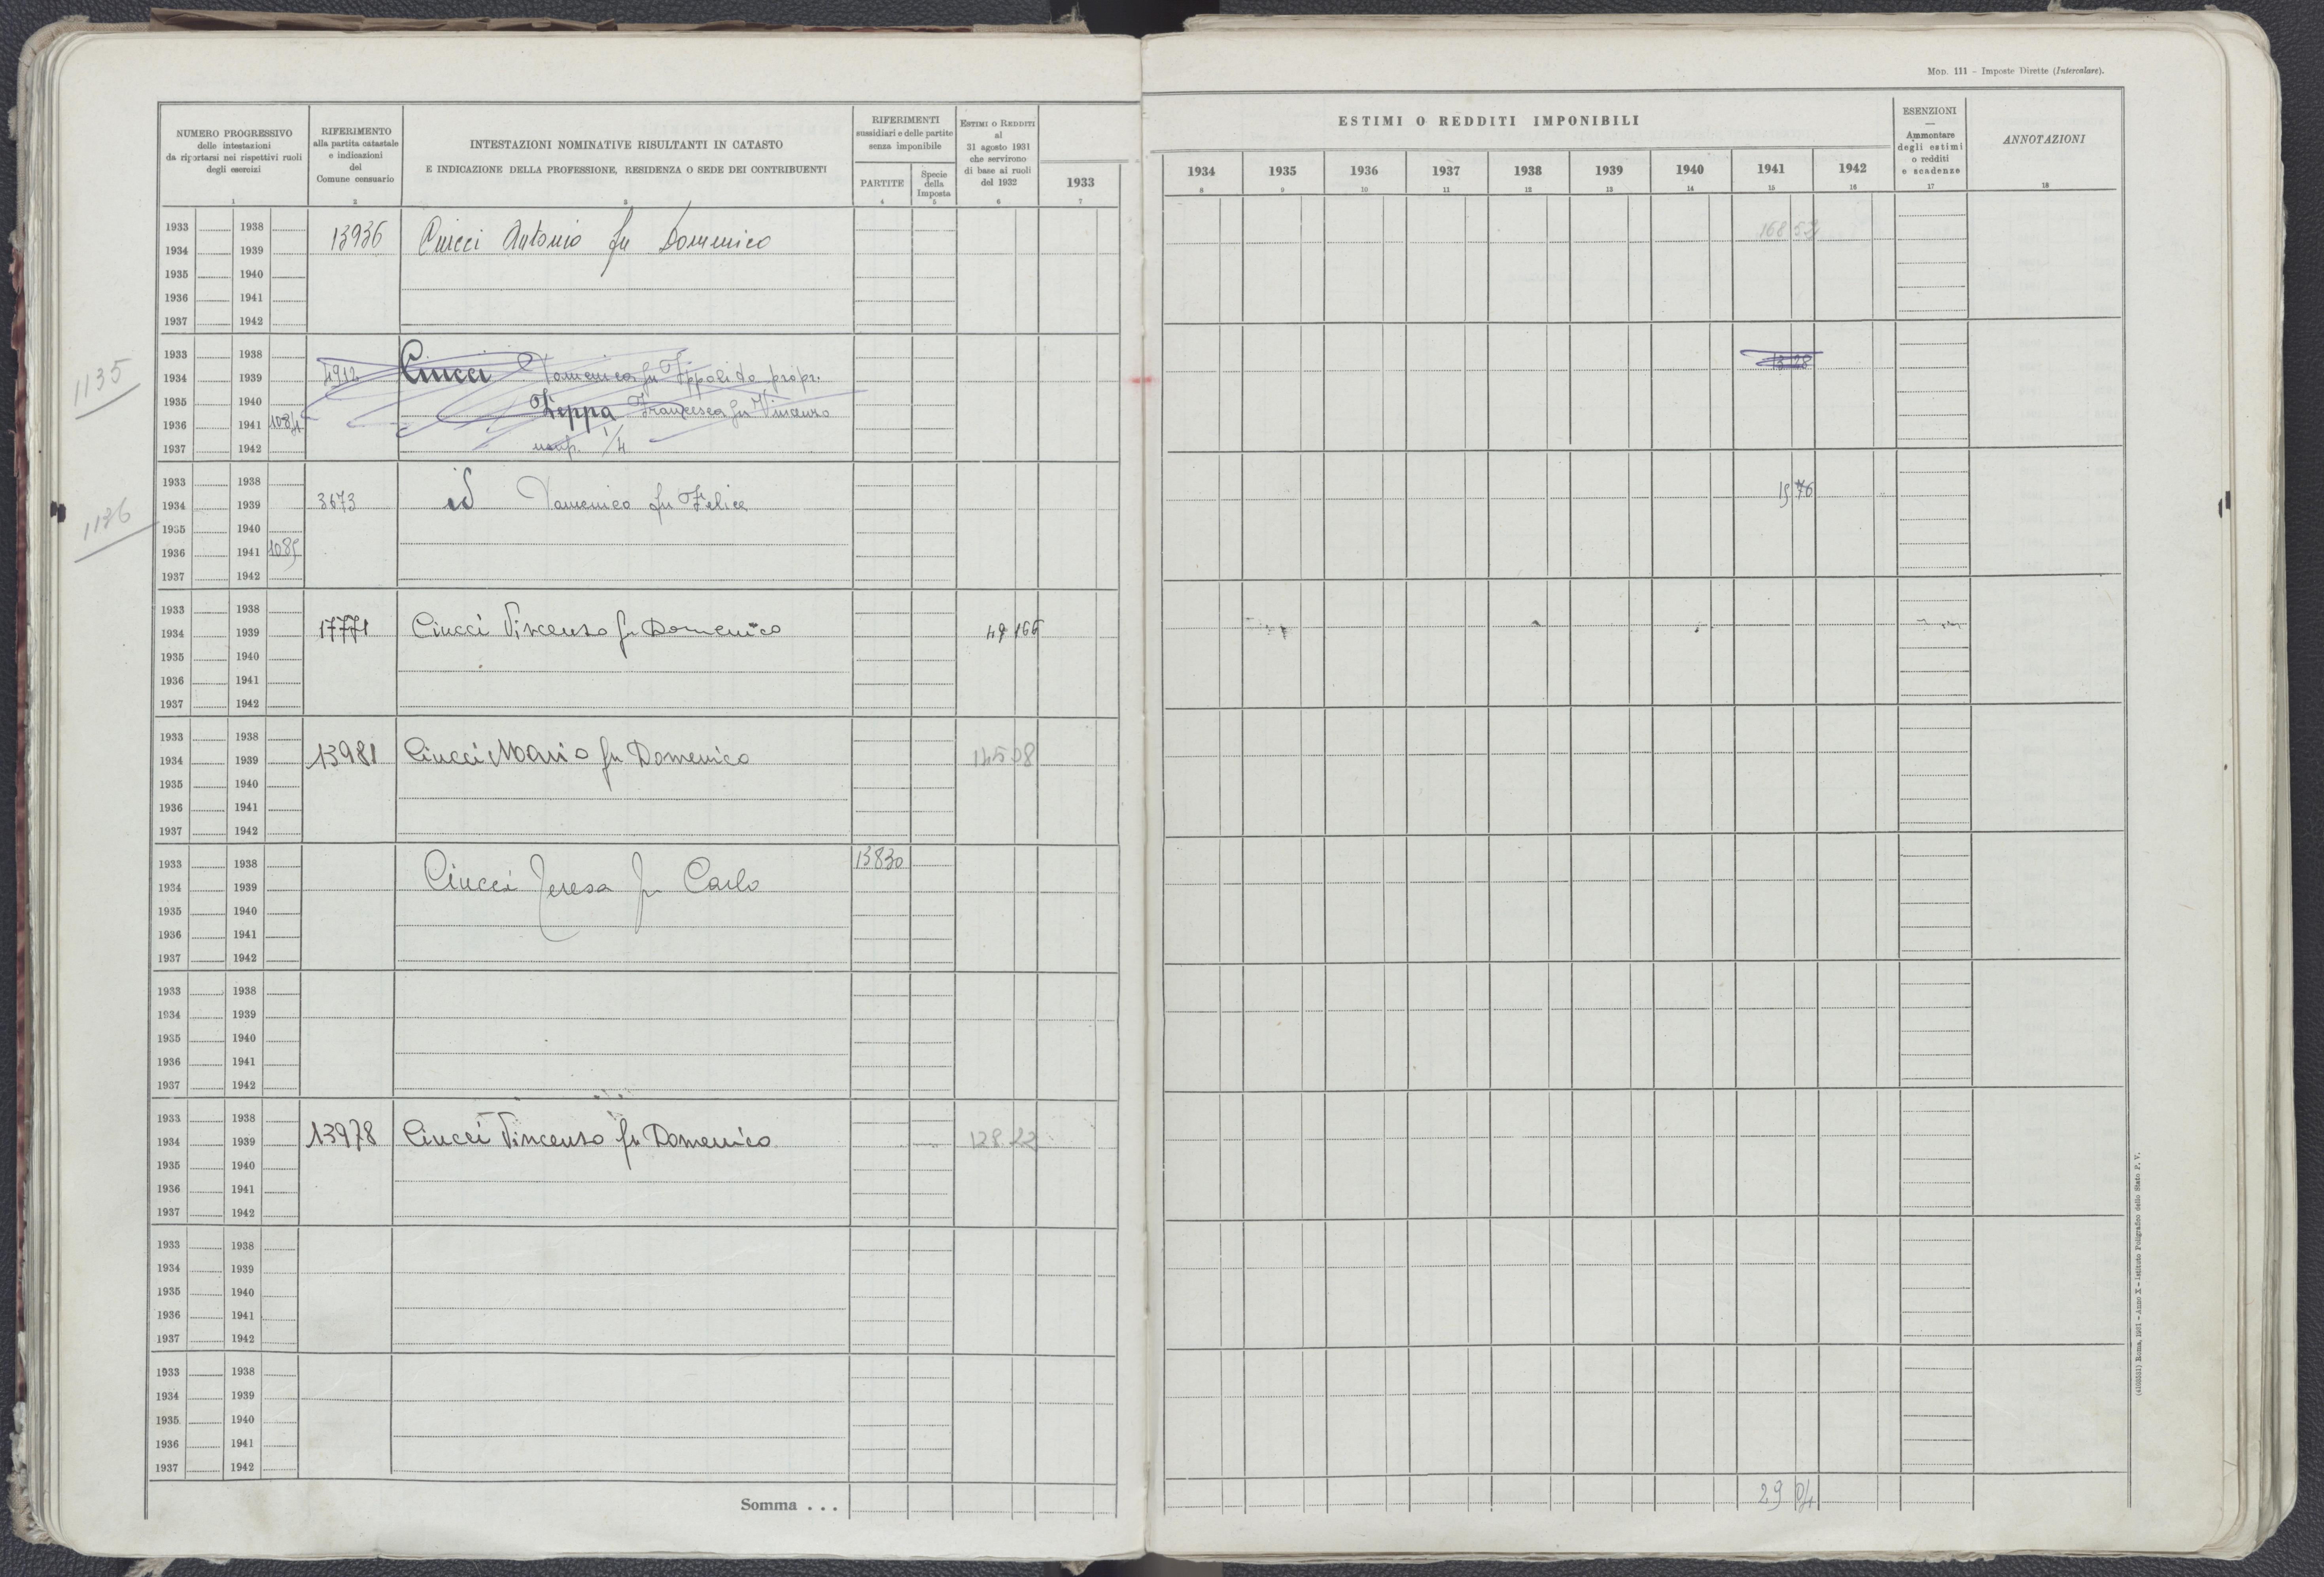 Mod. 111 - Imposte Dirette (Intercalare).
NUMERO PROGRESSIVO
delle intestazioni
da riportarsi nei rispettivi ruoli
degli esercizi
1
RIFERIMENTO
alla partita catastale
e indicazioni
del
Comune censuario
2
INTESTAZIONI NOMINATIVE RISULTANTI IN CATASTO
E INDICAZIONE DELLA PROFESSIONE, RESIDENZA O SEDE DEI CONTRIBUENTI
3
RIFERIMENTI
sussidiari e delle partite
senza imponibile
PARTITE
4
Specie
della
Imposta
5
Estimi o Redditi
al
31 agosto 1931
che servirono
di base ai ruoli
del 1932
6
1933
7
ESTIMI O REDDITI IMPONIBILI
1934 1935 1936 1937 1938 1939 1940 1941 1942
8 9 10 11 12 13 14 15 16
ESENZIONI
—
Ammontare
degli estimi
o redditi
e scadenze
17
ANNOTAZIONI
18
1933 1938
13936 Ciucci Antonio fu Domenico 168 52
1934 1939
1935 1940
1936 1941
1937 1942
1135
1933 1938
4912 Ciucci Domenico fu Ippolito propr. 13 28
1934 1939
1935 1940
Zeppa Francesca fu Vincenzo
1936 1941 1084
usuf. 1/4
1937 1942
1136
1933 1938
3673 id Domenico fu Felice 15 76
1934 1939
1935 1940
1936 1941 1085
1937 1942
1933 1938
17771 Ciucci Vincenzo fu Domenico 49 166
1934 1939
1935 1940
1936 1941
1937 1942
1933 1938
13981 Ciucci Mario fu Domenico 145 08
1934 1939
1935 1940
1936 1941
1937 1942
1933 1938
Ciucci Teresa fu Carlo 13830
1934 1939
1935 1940
1936 1941
1937 1942
1933 1938
1934 1939
1935 1940
1936 1941
1937 1942
1933 1938
13978 Ciucci Vincenzo fu Domenico 128.22
1934 1939
1935 1940
1936 1941
1937 1942
1933 1938
1934 1939
1935 1940
1936 1941
1937 1942
1933 1938
1934 1939
1935 1940
1936 1941
1937 1942
Somma . . . 29 04
Roma, 1931 - Anno X - Istituto Poligrafico dello Stato P. V.